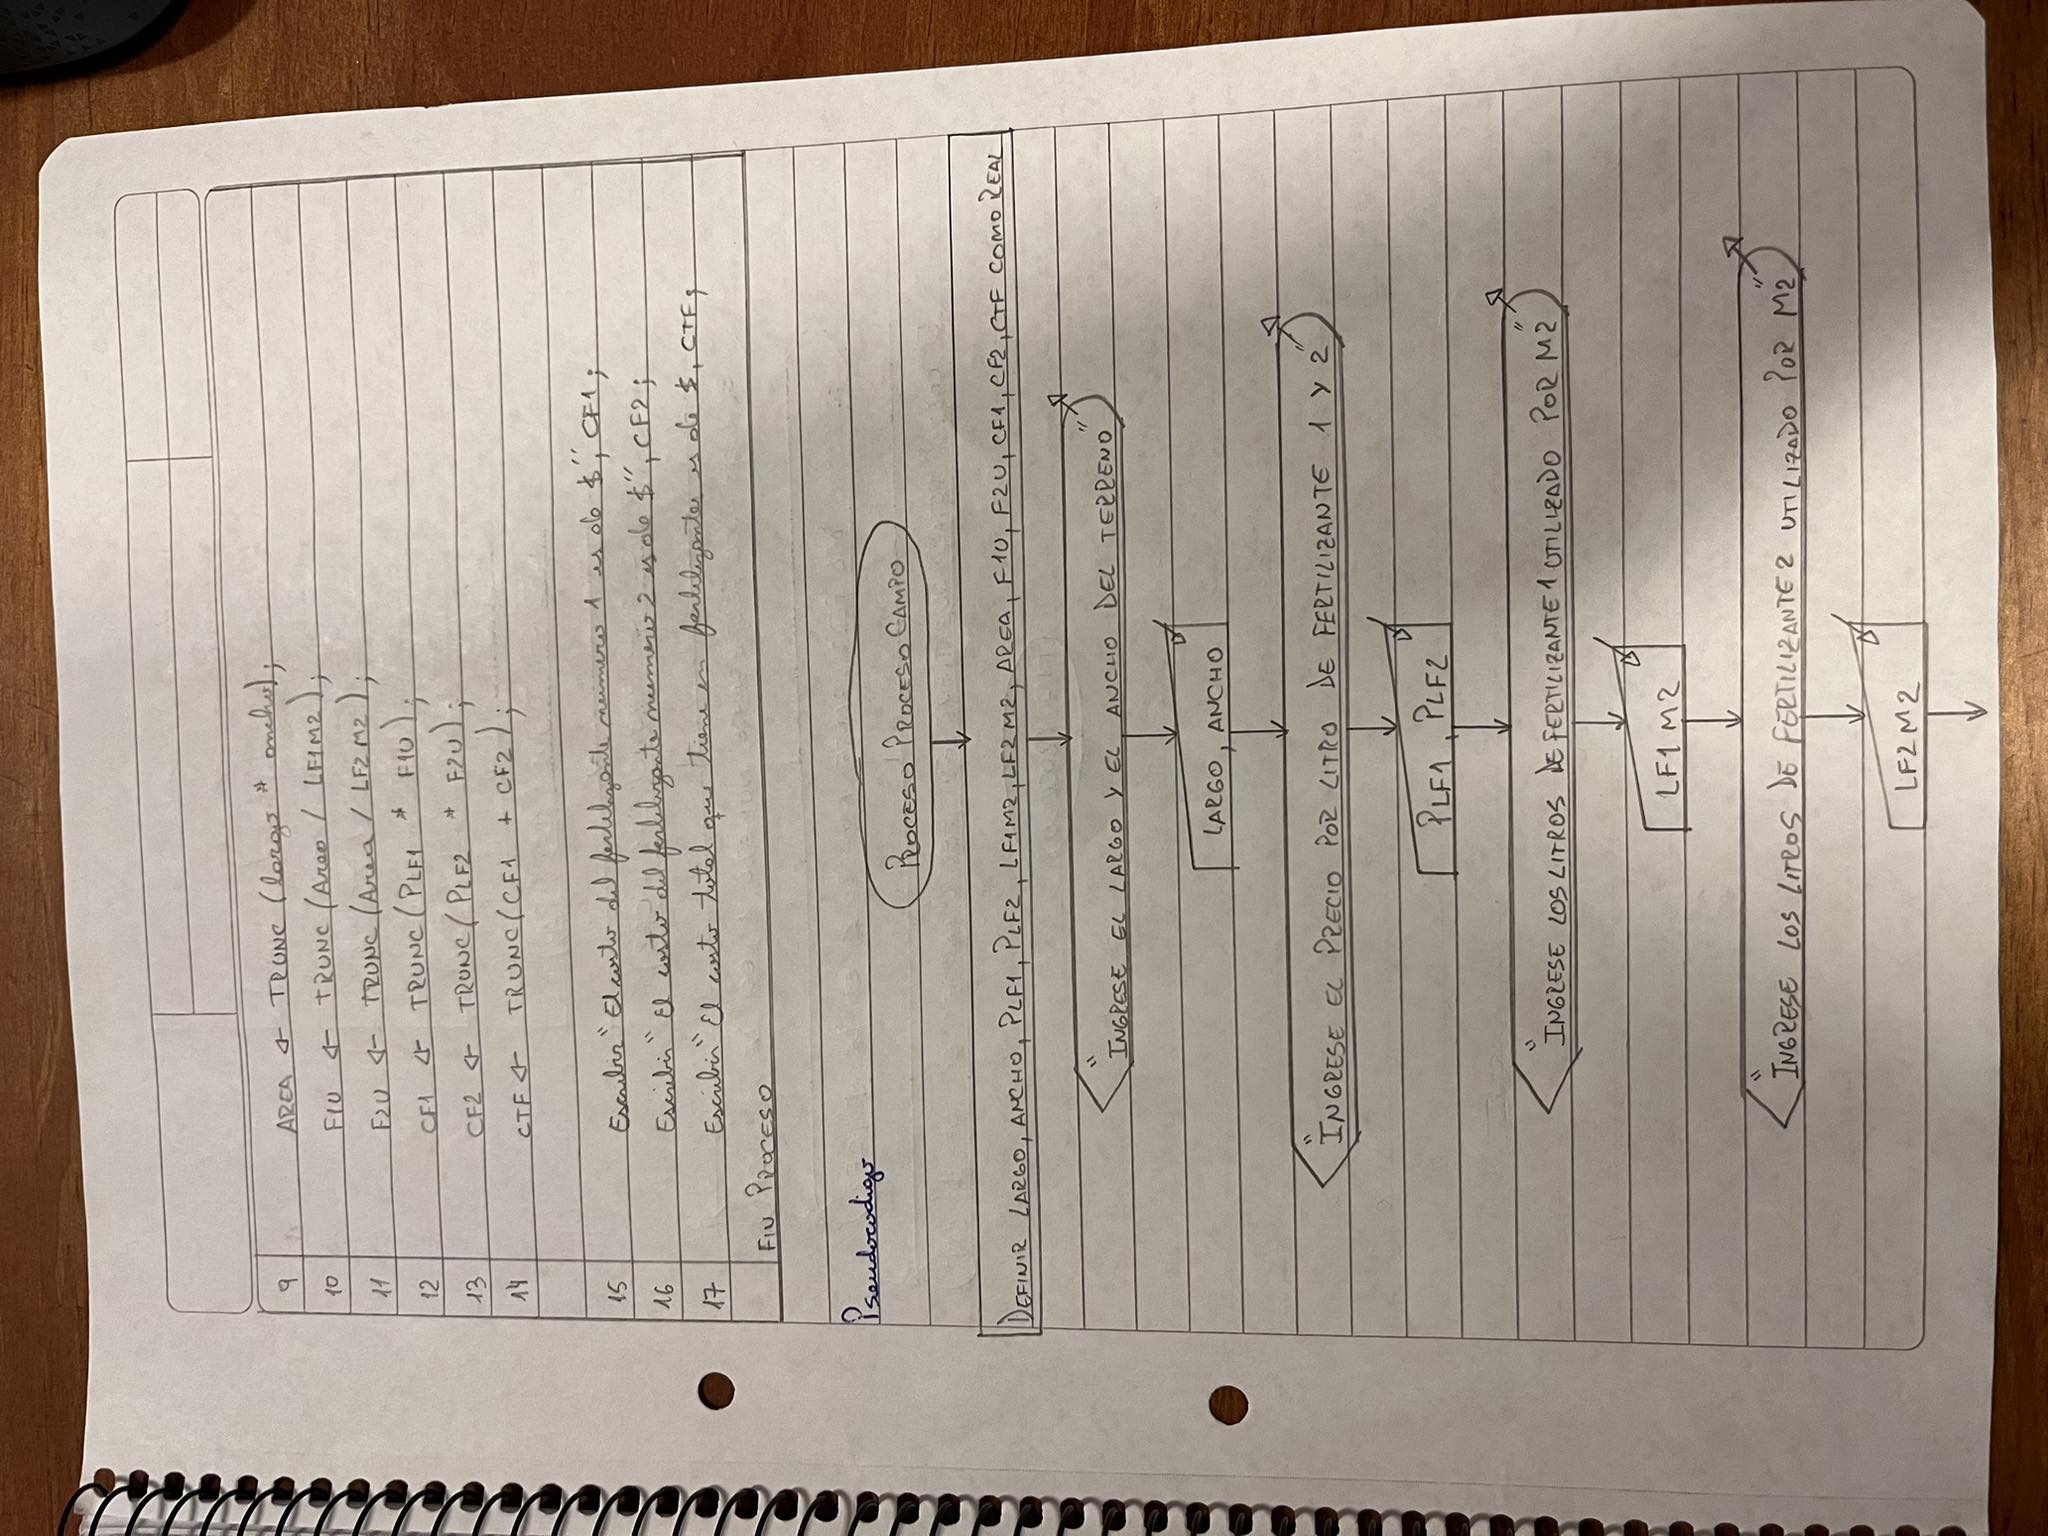 9 AREA ← TRUNC (largo * ancho);
10 F1U ← TRUNC (Area / LF1M2);
11 F2U ← TRUNC (Area / LF2M2);
12 CF1 ← TRUNC (PLF1 * F1U);
13 CF2 ← TRUNC (PLF2 * F2U);
14 CTF ← TRUNC (CF1 + CF2);
15 Escribir "El costo del fertilizante numero 1 es de $", CF1;
16 Escribir "El costo del fertilizante numero 2 es de $", CF2;
17 Escribir "El costo total que tiene en fertilizantes es de $, CTF;
FIN PROCESO
Pseudocodigo
PROCESO PROCESO CAMPO
DEFINIR LARGO, ANCHO, PLF1, PLF2, LF1M2, LF2M2, AREA, F1U, F2U, CF1, CF2, CTF COMO REAL
"INGRESE EL LARGO Y EL ANCHO DEL TERRENO"
LARGO, ANCHO
"INGRESE EL PRECIO POR LITRO DE FERTILIZANTE 1 Y 2"
PLF1, PLF2
"INGRESE LOS LITROS DE FERTILIZANTE 1 UTILIZADO POR M2"
LF1M2
"INGRESE LOS LITROS DE FERTILIZANTE 2 UTILIZADO POR M2"
LF2M2